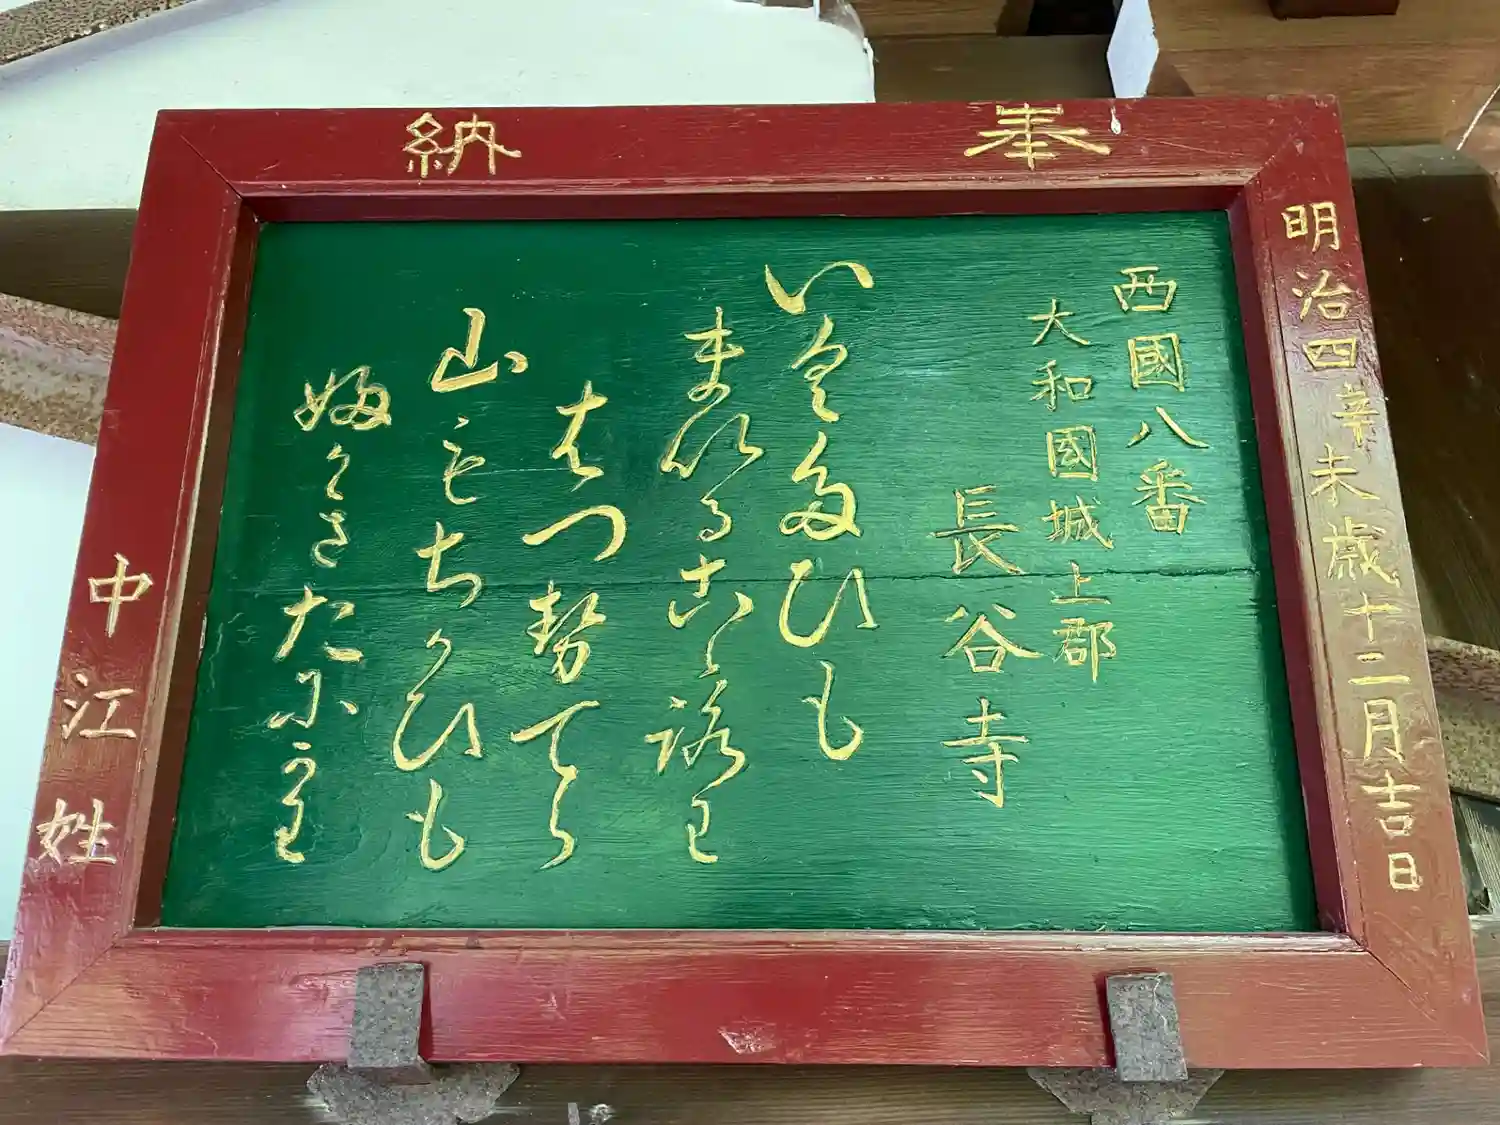 奉納
明治四辛未歳十二月吉日
西國八番
大和國城上郡
長谷寺
いくたひも
まいるこゝろわ
はつ勢てら
山もちかひも
婦かきたにかわ
中江姓